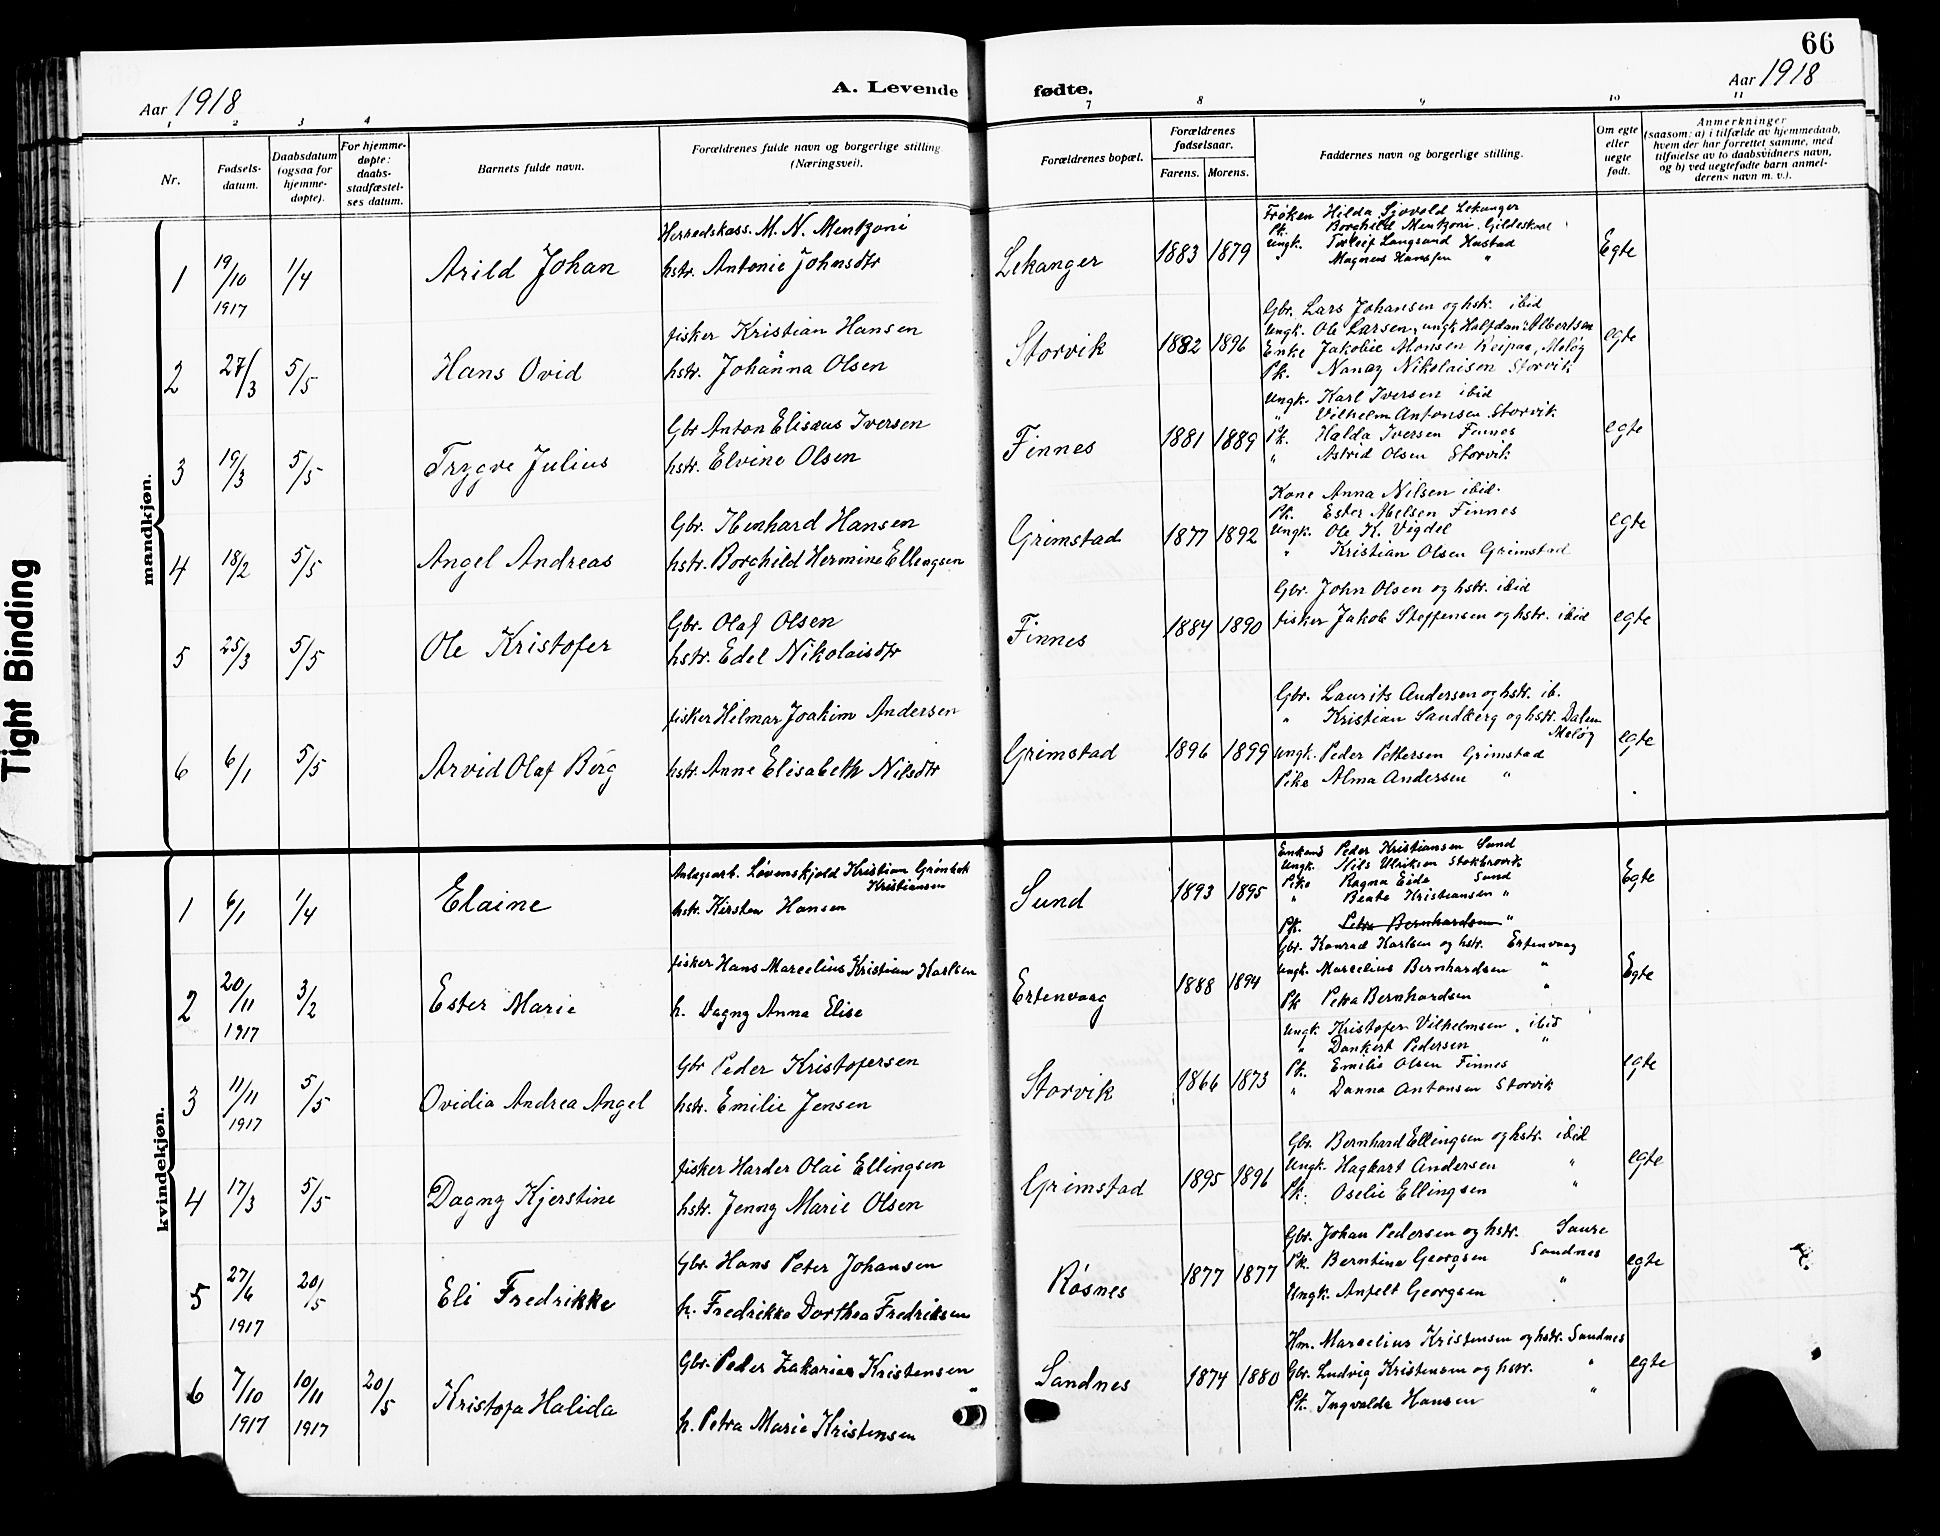 66
Aar 1918
A. Levende fødte.
Aar 1918
1 2 3 4 7 8 9 10 11
Nr.
Fødsels-
datum.
Daabsdatum
(ogsaa for
hjemme-
døpte).
For hjemme-
døpte:
daabs-
stadfæstel-
ses datum.
Barnets fulde navn.
Forældrenes fulde navn og borgerlige stilling
(Næringsvei).
Forældrenes bopæl.
Forældrenes
fødselsaar.
Farens. Morens.
Faddernes navn og borgerlige stilling.
Om egte
eller
uegte
født.
Anmerkninger
(saasom: a) i tilfælde av hjemmedaab,
hvem der har forrettet samme, med
tilføielse av to daabsvidners navn,
og b) ved uegtefødte barn anmel-
derens navn m. v.).
mandkjøn.
1 19/10 1917 1/4 Arild Johan
Herredskass. M. N. Mentzoni
hstr. Antonie Johnsdtr
Lekanger 1883 1879
Frøken Hilda Sjovold Lekanger
Pk. Borghild Mentzoni Gildeskaal
Ungk. Torleif Langsand Hustad
" Magnus Hansen "
Egte
2 27/3 5/5 Hans Ovid
fisker Kristian Hansen
hstr. Johanna Olsen
Storvik 1882 1896
Gbr. Lars Johansen og hstr. ibid
Ungk. Ole Larsen, ungk Halfdan Albertsen
Enke Jakobie Monsen Reipaa, Meløy
Pk. Nancy Nikolaisen Storvik
egte
3 19/3 5/5 Trygve Julius
Gbr Anton Elisæus Iversen
hstr. Elvine Olsen
Finnes 1881 1889
Ungk. Karl Iversen ibid
" Vilhelm Antonsen Storvik
Pk. Halda Iversen Finnes
" Astrid Olsen Storvik
egte
4 18/2 5/5 Angel Andreas
Gbr. Ibenhard Hansen
hstr. Borghild Hermine Ellingsen
Grimstad 1877 1892
Kone Anna Nilsen ibid.
Pk. Ester Abelsen Finnes
Ungk. Ole K. Vigdel
" Kristian Olsen Grimstad
egte
5 25/3 5/5 Ole Kristofer
Gbr. Olaf Olsen
hstr. Edel Nikolaisdtr
Finnes 1884 1890
Gbr. John Olsen og hstr. ibid
fisker Jakob Steffensen og hstr. ibid
egte
6 6/1 5/5 Arvid Olaf Berg
fisker Hilmar Joakim Andersen
hstr. Anne Elisabeth Nilsdtr
Grimstad 1896 1899
Gbr. Laurits Andersen og hstr. ib.
" Kristian Sandberg og hstr. Dalen
Meløy
Ungk. Peder Pettersen Grimstad
Pike Alma Andersen "
egte
kvindekjøn.
1 6/1 1/4 Elaine
Anlægsarb. Løvenskjold Kristian Grønbek
Kristiansen
hstr. Kirsten Hansen
Sund 1893 1895
Enkem. Peder Kristiansen Sund
Ungk. Nils Ulriksen
Pike Ragna Eide Sund
" Beate Kristiansen "
Pk. Petra Bernhardsen "
Egte
2 20/11 1917 3/2 Ester Marie
fisker Hans Marcelius Kristian Karlsen
h. Dagny Anna Elise
Ertenvaag 1888 1894
Gbr. Konrad Karlsen og hstr. Ertenvaag
Ungk. Marcelius Bernhardsen "
Pk Petra Bernhardsen "
Egte
3 11/11 1917 5/5 Ovidia Andrea Angel
Gbr Peder Kristofersen
hstr. Emilie Jensen
Storvik 1866 1873
Ungk. Kristofer Vilhelmsen, ibid
" Dankert Pedersen "
Pk. Emilie Olsen Finnes
" Danna Antonsen Storvik
egte
4 17/3 5/5 Dagny Kjerstine
fisker Harder Olai Ellingsen
hstr. Jenny Marie Olsen
Grimstad 1895 1896
Gbr. Bernhard Ellingsen og hstr. ibid
Ungk. Hagbart Andersen "
Pk. Oselie Ellingsen "
egte
5 27/6 1917 20/5 Eli Fredrikke
Gbr. Hans Peter Johansen
h. Fredrikke Dorthea Fredriksen
Røsnes 1877 1877
Gbr. Johan Pedersen og hstr. Saure
Pk. Berntine Georgsen Sandnes
Ungk. Anfelt Georgsen "
egte
6 7/10 1917 10/11 1917 20/5 Kristofa Halida
Gbr. Peder Zakarias Kristensen
h. Petra Marie Kristensen
Sandnes 1874 1880
Hm. Marcelius Kristensen og hstr. Sandnes
Gbr. Ludvig Kristensen og hstr. "
Pk. Ingvalda Hansen "
egte
Tight Binding